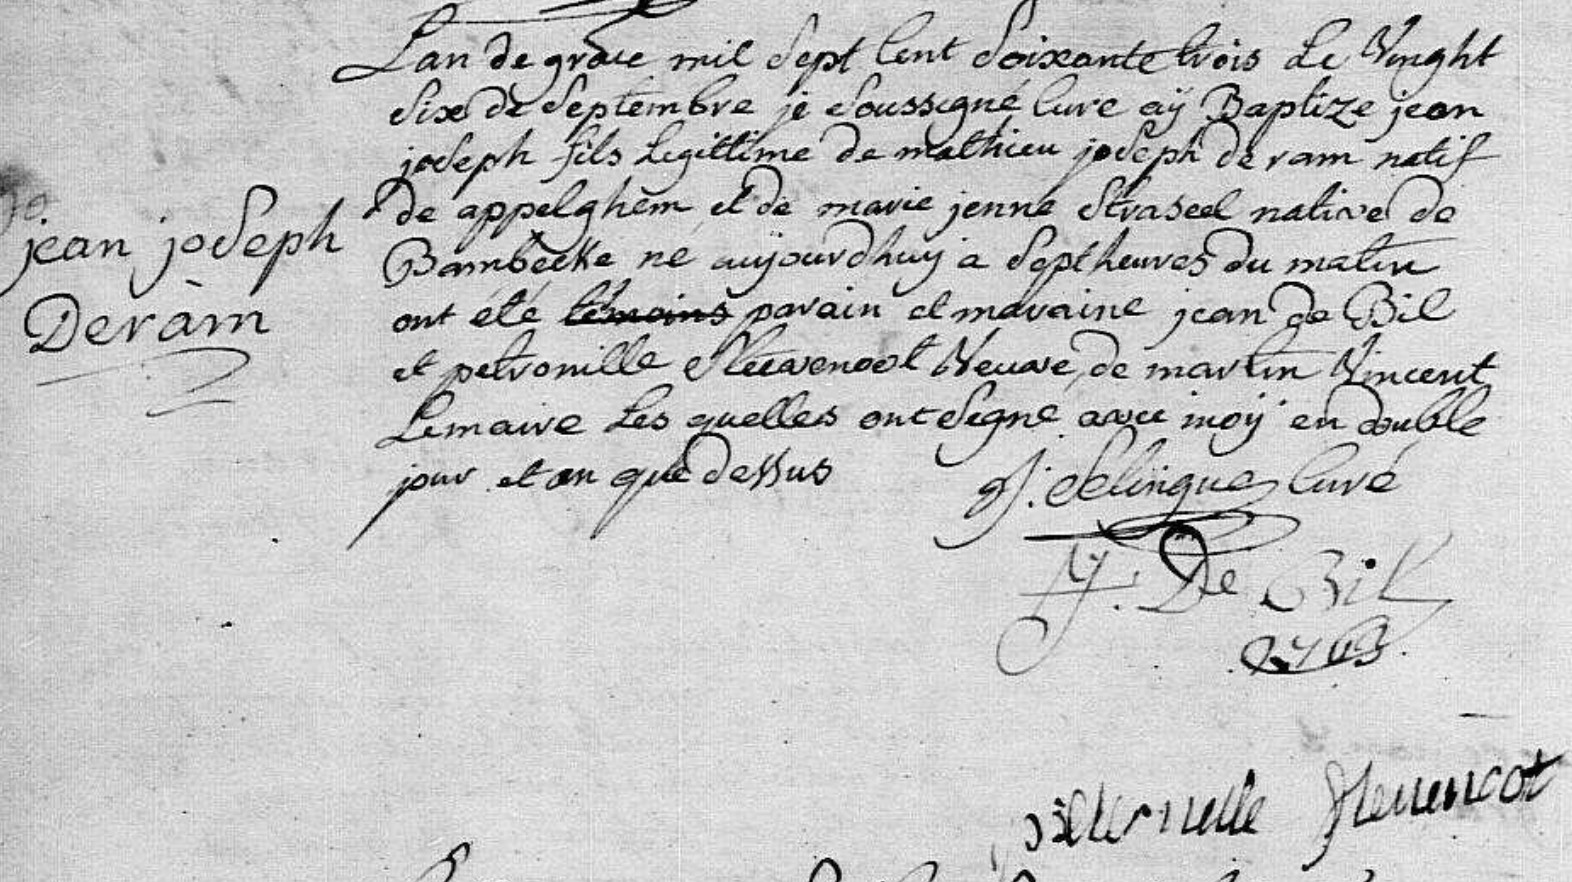 jean joseph
Deràm
Lan de grace mil sept Cent Soixante trois Le Vinght
Six de Septembre je Soussigné Curé aÿ Baptize jean
joseph fils Legittime de mathieu joseph de ram natif
de appelghem et de marie jenne Straseel native de
Bambecke né aujourdhuy a Sept heures du matin
ont été temoins parain et maraine jean de Bil
et petronille Veuve de martin Vincent
Lemaire Les quelles ont Signé avec moÿ en double
jour et an que dessus
J: Selingue Curé
J. De Bil
1763.